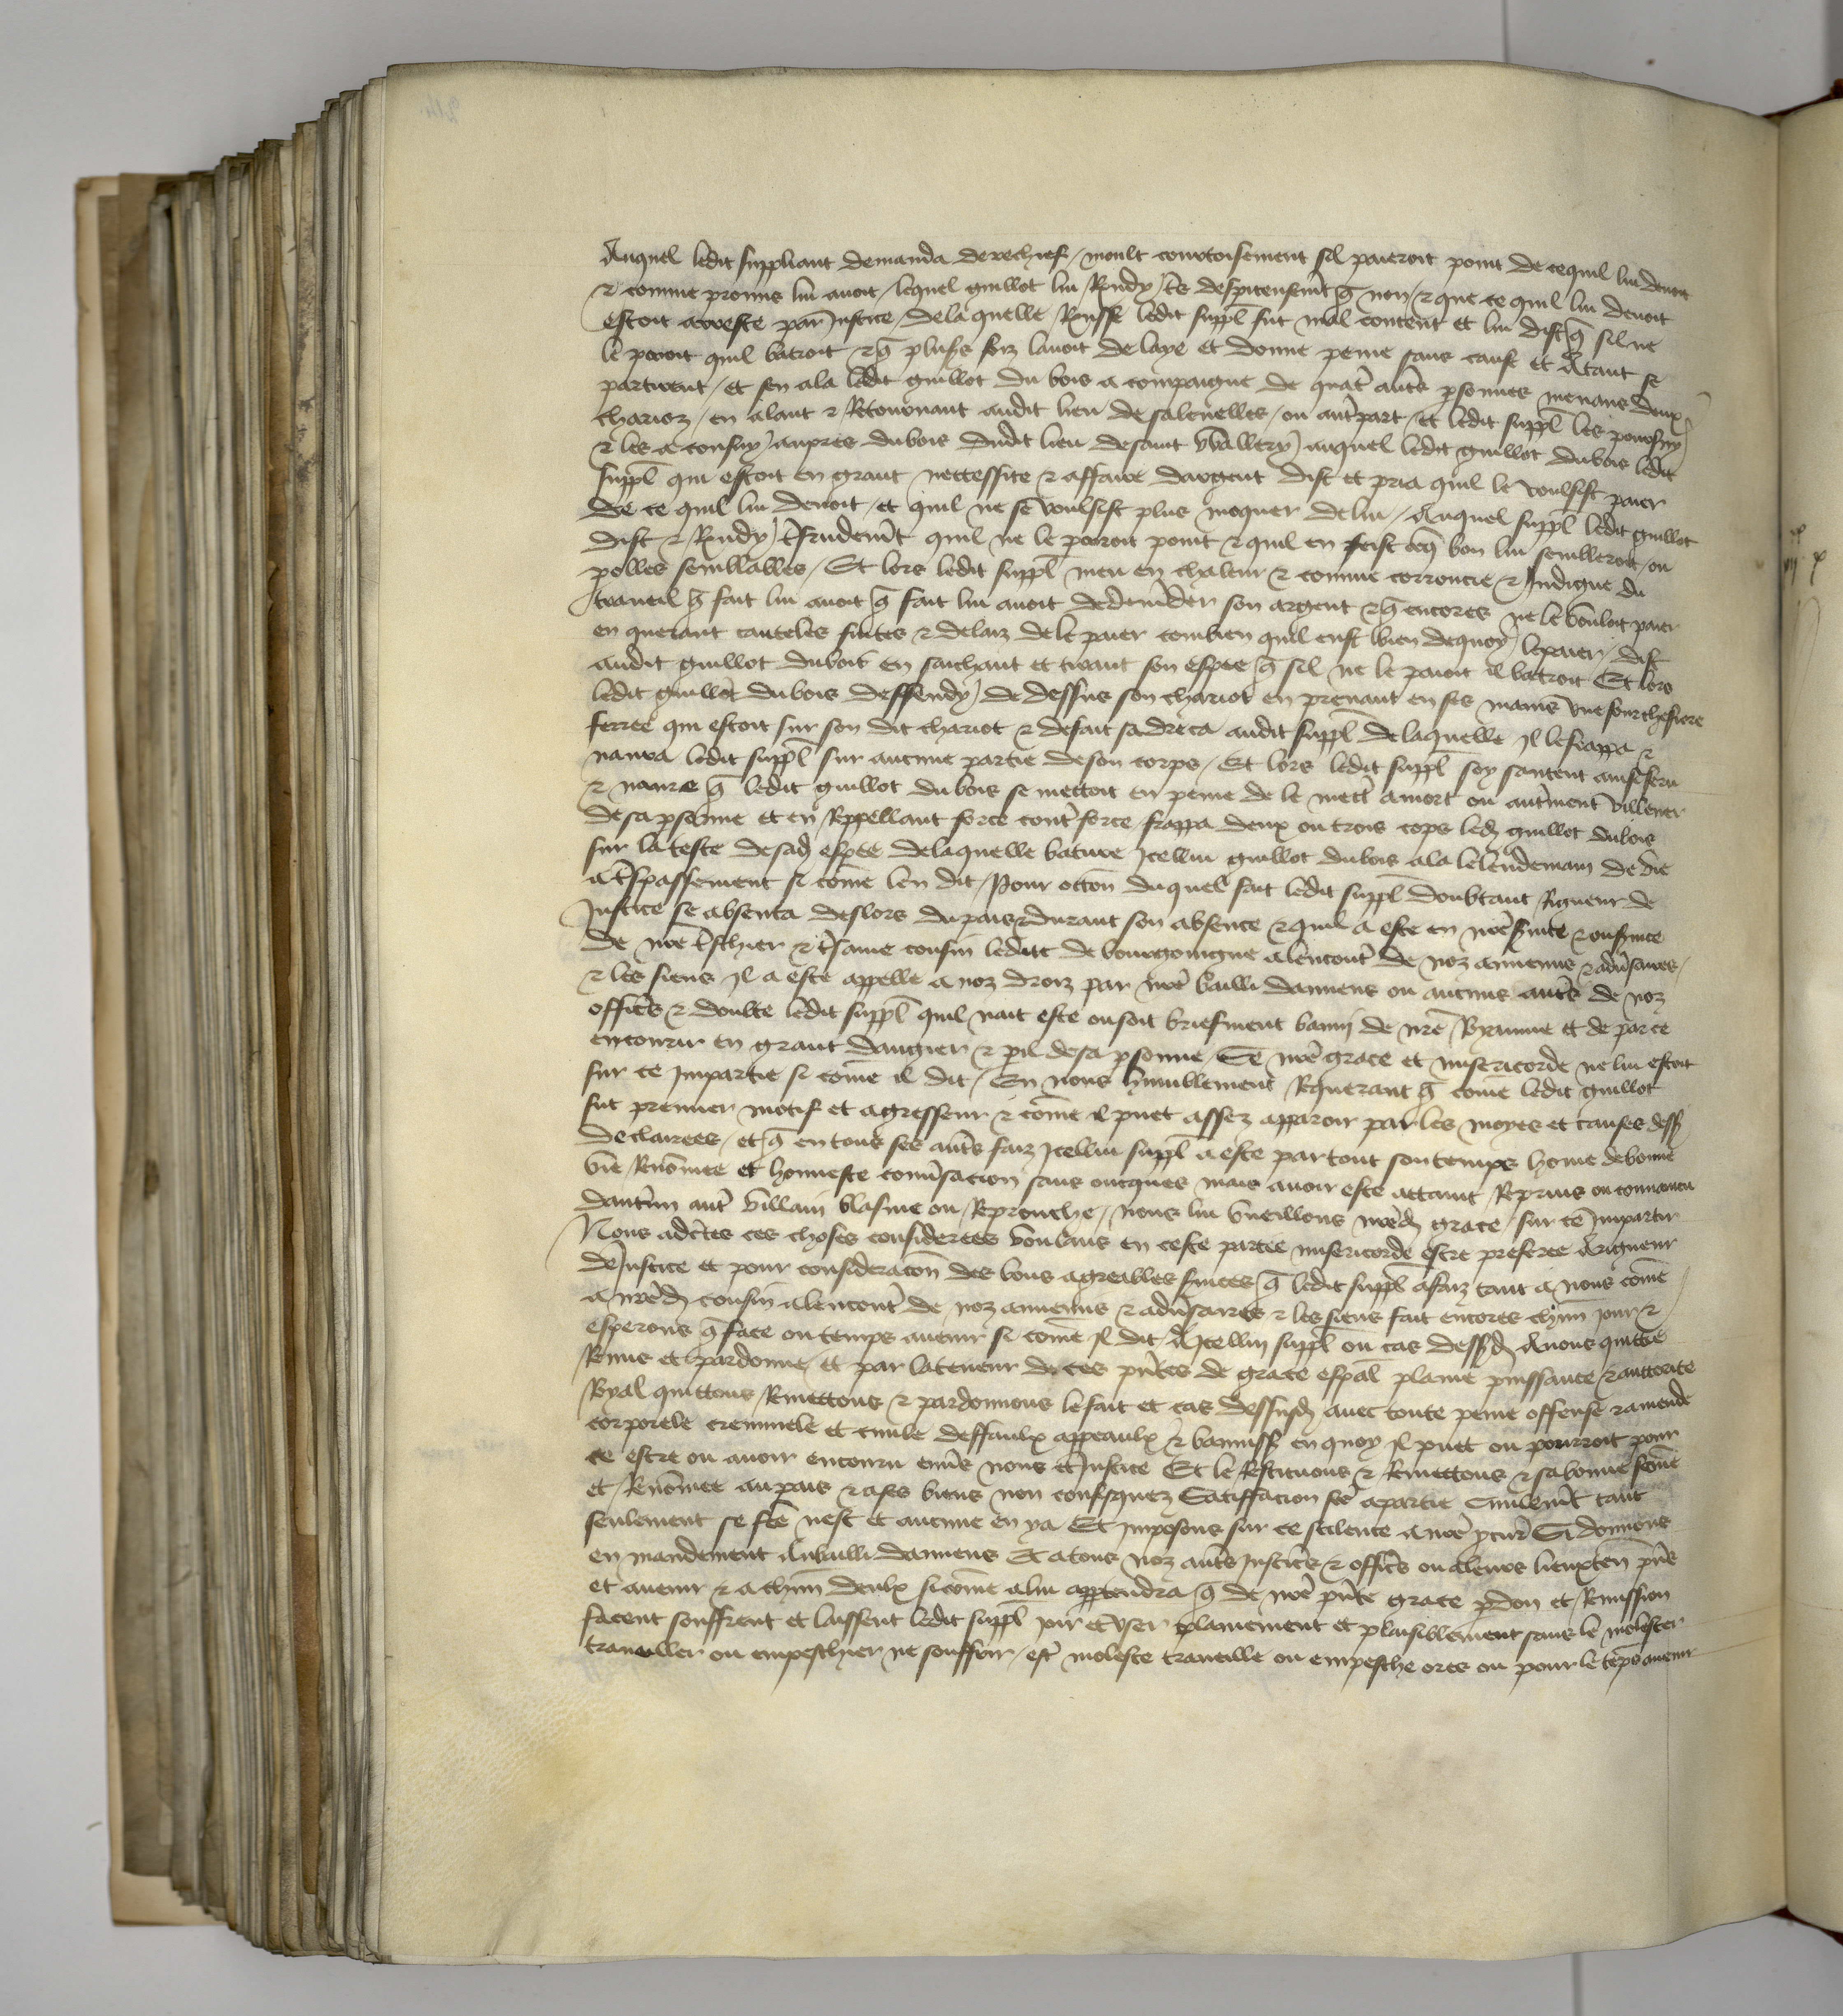 Auquel ledit suppliant demanda derechief / moult courtoisement sil paieroit point de cequil lui devoit
& comme promis lui avoit / lequel guillot lui Rndy / t̃s despiteusemt̃ q̃ non / & que ce quil lui devoit
estoit arreste par Justice / delaquelle Rnsse ledit suppl̃ fut mal content et lui dist q̃ sil ne
le paioit quil batroit & q̃ plus̃s foiz lavoit delaye et donne peine sans cause et Atant se
partirent / et sen ala ledit guillot du bois a compaigne de quat̃ aut̃s p̃sonnes menans deux
charioz / en alant & Retournant audit lieu de saleuelles / ou aut̃part / et ledit suppl̃ les poursuy
& les a consuy / aupres dubois dudit lieu desaint Wallery / auquel ledit guillot dubois ledit
suppl̃ qui estoit en grant neccessite & affaire dargent dist et pria quil le voulsist paier
de ce quil lui devoit / et quil ne se voulsist plus moquer de lui / Auquel suppl̃ ledit guillot
dist & Rndy / t̃srudemt̃ quil ne le paieroit point & quil en feist ce q̃ bon lui sembleroit / ou
polles semblables / Et lors ledit suppl̃ meu en chaleur & comme corroucie & Indigne du
travail q̃ fait lui avoit q̃ fait lui avoit dedemãder son argent & q̃ encores ne le vouloit paier
en querant cauteles fuites & delaiz de le paier combien quil eust bien dequoy / lepaier / dist
audit guillot dubois en sachant et tirant son espee q̃ sil ne le paioit il batroit Et lors
ledit guillot dubois dessendy / de dessus son chariot en prenant en ses mains une fourchefiere
ferree qui estoit sur son dit chariot & desait sadreca audit suppl̃ delaquelle Il lefrappa &
navra ledit suppl̃ sur aucune partie deson corps / Et lors ledit suppl̃ soy santent ainsi feru
& navre q̃ ledit guillot dubois se mettoit en peine de le mett̃ amort ou aut̃ment villener
desa p̃sonne et en Rppellant force cont̃ force frappa deux ou trois cops led̃ guillot dubois
sur la teste desad̃ espee delaquelle bature Icellui guillot dubois ala lelendemain de vie
a t̃spassement si cõme len dit / Pour occõn duquel fait ledit suppl̃ doubtant Rigueur de
Justice se absenta deslors du pais & durant son absence & quil a este en nr̃e s̃vice & ous̃vice
de nr̃e t̃schier & t̃same cousin leduc de bourgoingne alencont̃ de noz annemis & adṽsaires /
& les siens Il a este appelle a noz droiz par nr̃e bailli damiens ou aucuns aut̃s de noz
officẽs & doubte ledit suppl̃ quil nait este ousoit briefment banny de nr̃e Ryaume et de par ce
encourir en grant dangier & p̃il desa p̃sonne / Se nr̃e grace et misericorde ne lui estoit
sur ce Impartie si cõme il dit / En nous humblement Rquerant q̃ cõme ledit guillot
fut premier motif et agresseur & cõme il puet assez apparoir par les moyes et causes dess̃
declairees / et q̃ en tous ses aut̃s faiz Icellui suppl̃ a este partout sontemps hõme debonne
vie Renõmee et honneste conṽsacion sans oncques mais avoir este attaint Reprins ou convaincu
daucun aut̃ villain blasme ou Reprouche / nous lui vueillons nr̃ed̃ grace / sur ce Impartir
Nous adc̃tes ces choses considerees voulans en ceste partie misericorde estre preferee A rigueur
deJustice et pour consideracõn des bons agreables s̃vices q̃ ledit suppl̃ afaiz tant a nous cõme
a nr̃ed̃ cousin alencont̃ de noz annemis & adṽsaires & les siens fait encores chũn jour &
esperons q̃ face ou temps avenir si cõme Il dit A Icellui suppl̃ ou cas dess̃d̃ Avons quitte
Rmis et pardonne / et par lateneur de ces p̃ntes de grace esp̃al plaine puissance & auctorite
Ryal quittons Rmettons & pardonnons lefait et cas dessusd̃ avec toute peine offense & amende
corporele creminele et civile deffaulx appeaulx & bannis̃s en quoy Il puet ou pourroit pour
ce estre ou avoir encouru env̂s nous et Justice Et le Restituons & Remettons & sabonne fame
et Renõmee au pais & ases biens non confisquez Satiffacion fc̃e apartie civilemt̃ tant
seulement se fc̃e nest et aucune en ya Et Imposons sur ce scilence a nr̃e p̃cur̃ Si donnons
en mandement Aubailli damiens Et atous noz aut̃s Justicẽs & officẽs ou aleurs lieuxten̄ p̃ns
et avenir & achũn deulx sicõme alui appendra q̃ de nr̃e p̃nte grace p̃don et Rmission
facent souffrent et laissent ledit suppl̃ joir et user plainement et plaisiblement sans le molester
travailler ou empeschier ne souffrir / est̃ moleste travaille ou empesche ores ou pour le temps avenir